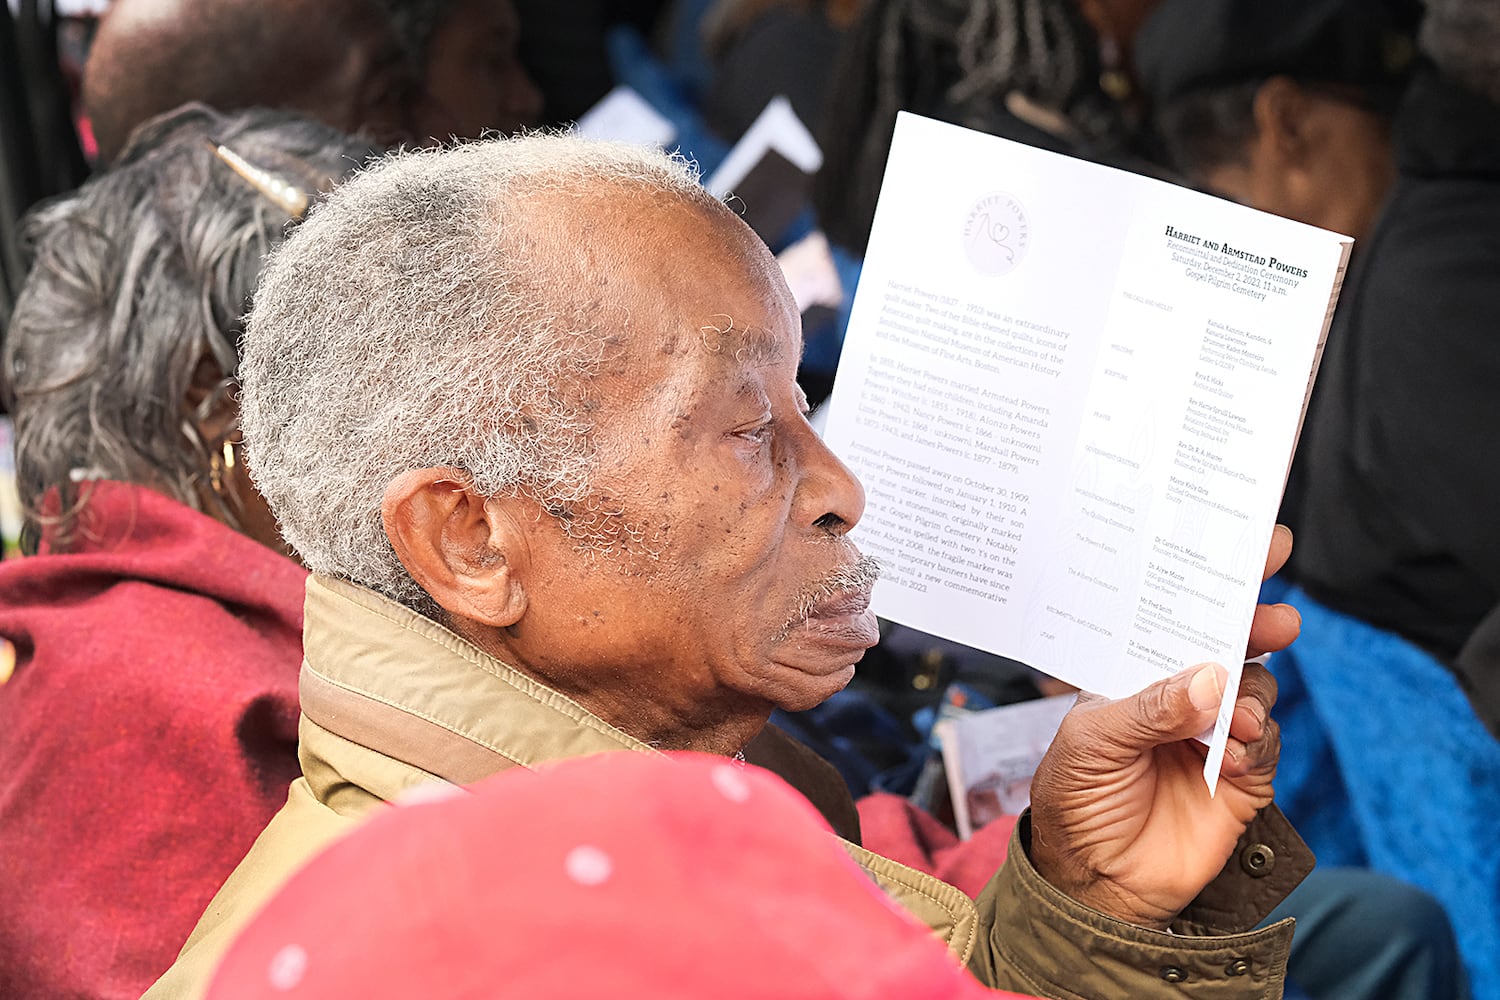 HARRIET POWERS
Harriet Powers (1837 - 1910) was an extraordinary
quilt maker. Two of her Bible-themed quilts, icons of
American quilt making, are in the collections of the
Smithsonian National Museum of American History
and the Museum of Fine Arts, Boston.
In 1855, Harriet Powers married Armstead Powers.
Together they had nine children, including Amanda
Powers Witcher (c. 1855 - 1918), Alonzo Powers
(c. 1860 - 1942), Nancy Powers (c. 1866 - unknown),
Little Powers (c. 1868 - unknown), Marshall Powers
(c. 1873-1943), and James Powers (c. 1877 - 1879).
Armstead Powers passed away on October 30, 1909,
and Harriet Powers followed on January 1, 1910. A
cut stone marker, inscribed by their son
Powers, a stonemason, originally marked
at Gospel Pilgrim Cemetery. Notably,
name was spelled with two 't's on the
marker. About 2008, the fragile marker was
and removed. Temporary banners have since
until a new commemorative
installed in 2023.
HARRIET AND ARMSTEAD POWERS
Recommittal and Dedication Ceremony
Saturday, December 2, 2023, 11 a.m.
Gospel Pilgrim Cemetery
THE CALL AND MEDLEY
Kamaria Lawrence
WELCOME
SCRIPTURE
Author and Quilter
PRAYER
President, Athens Area Human
Relations Council, Inc.
Reading Joshua 4:4-7
GOVERNMENT GREETINGS
Pastor, New Springfield Baptist Church,
Philomath, GA
Mayor Kelly Girtz
Unified Government of Athens-Clarke
County
WORDS FROM COMMUNITIES
The Quilting Community
Dr. Carolyn L. Mazloomi
Founder, Women of Color Quilters Network
The Powers Family
Harriet Powers
The Athens Community
Mr. Fred Smith
Executive Director, East Athens Development
Corporation and Athens ASALH Branch
Member
RECOMMITTAL AND DEDICATION
LITANY
Dr. James Washington, Jr.